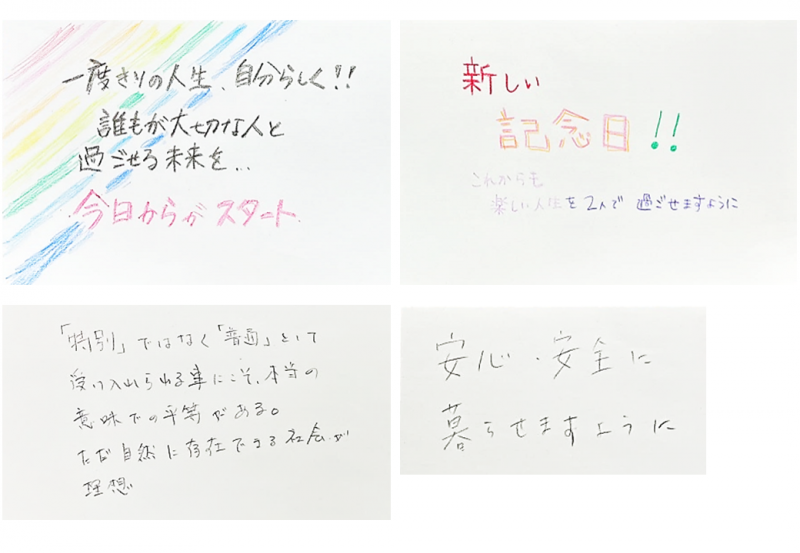 一度きりの人生、自分らしく!!
誰もが大切な人と
過ごせる未来を...
今日からがスタート
新しい
記念日!!
これからも
楽しい人生を2人で過ごせますように
「特別」ではなく「普通」として
受け入れられる事にこそ、本当の
意味での平等がある。
ただ自然に存在できる社会が
理想
安心・安全に
暮らせますように